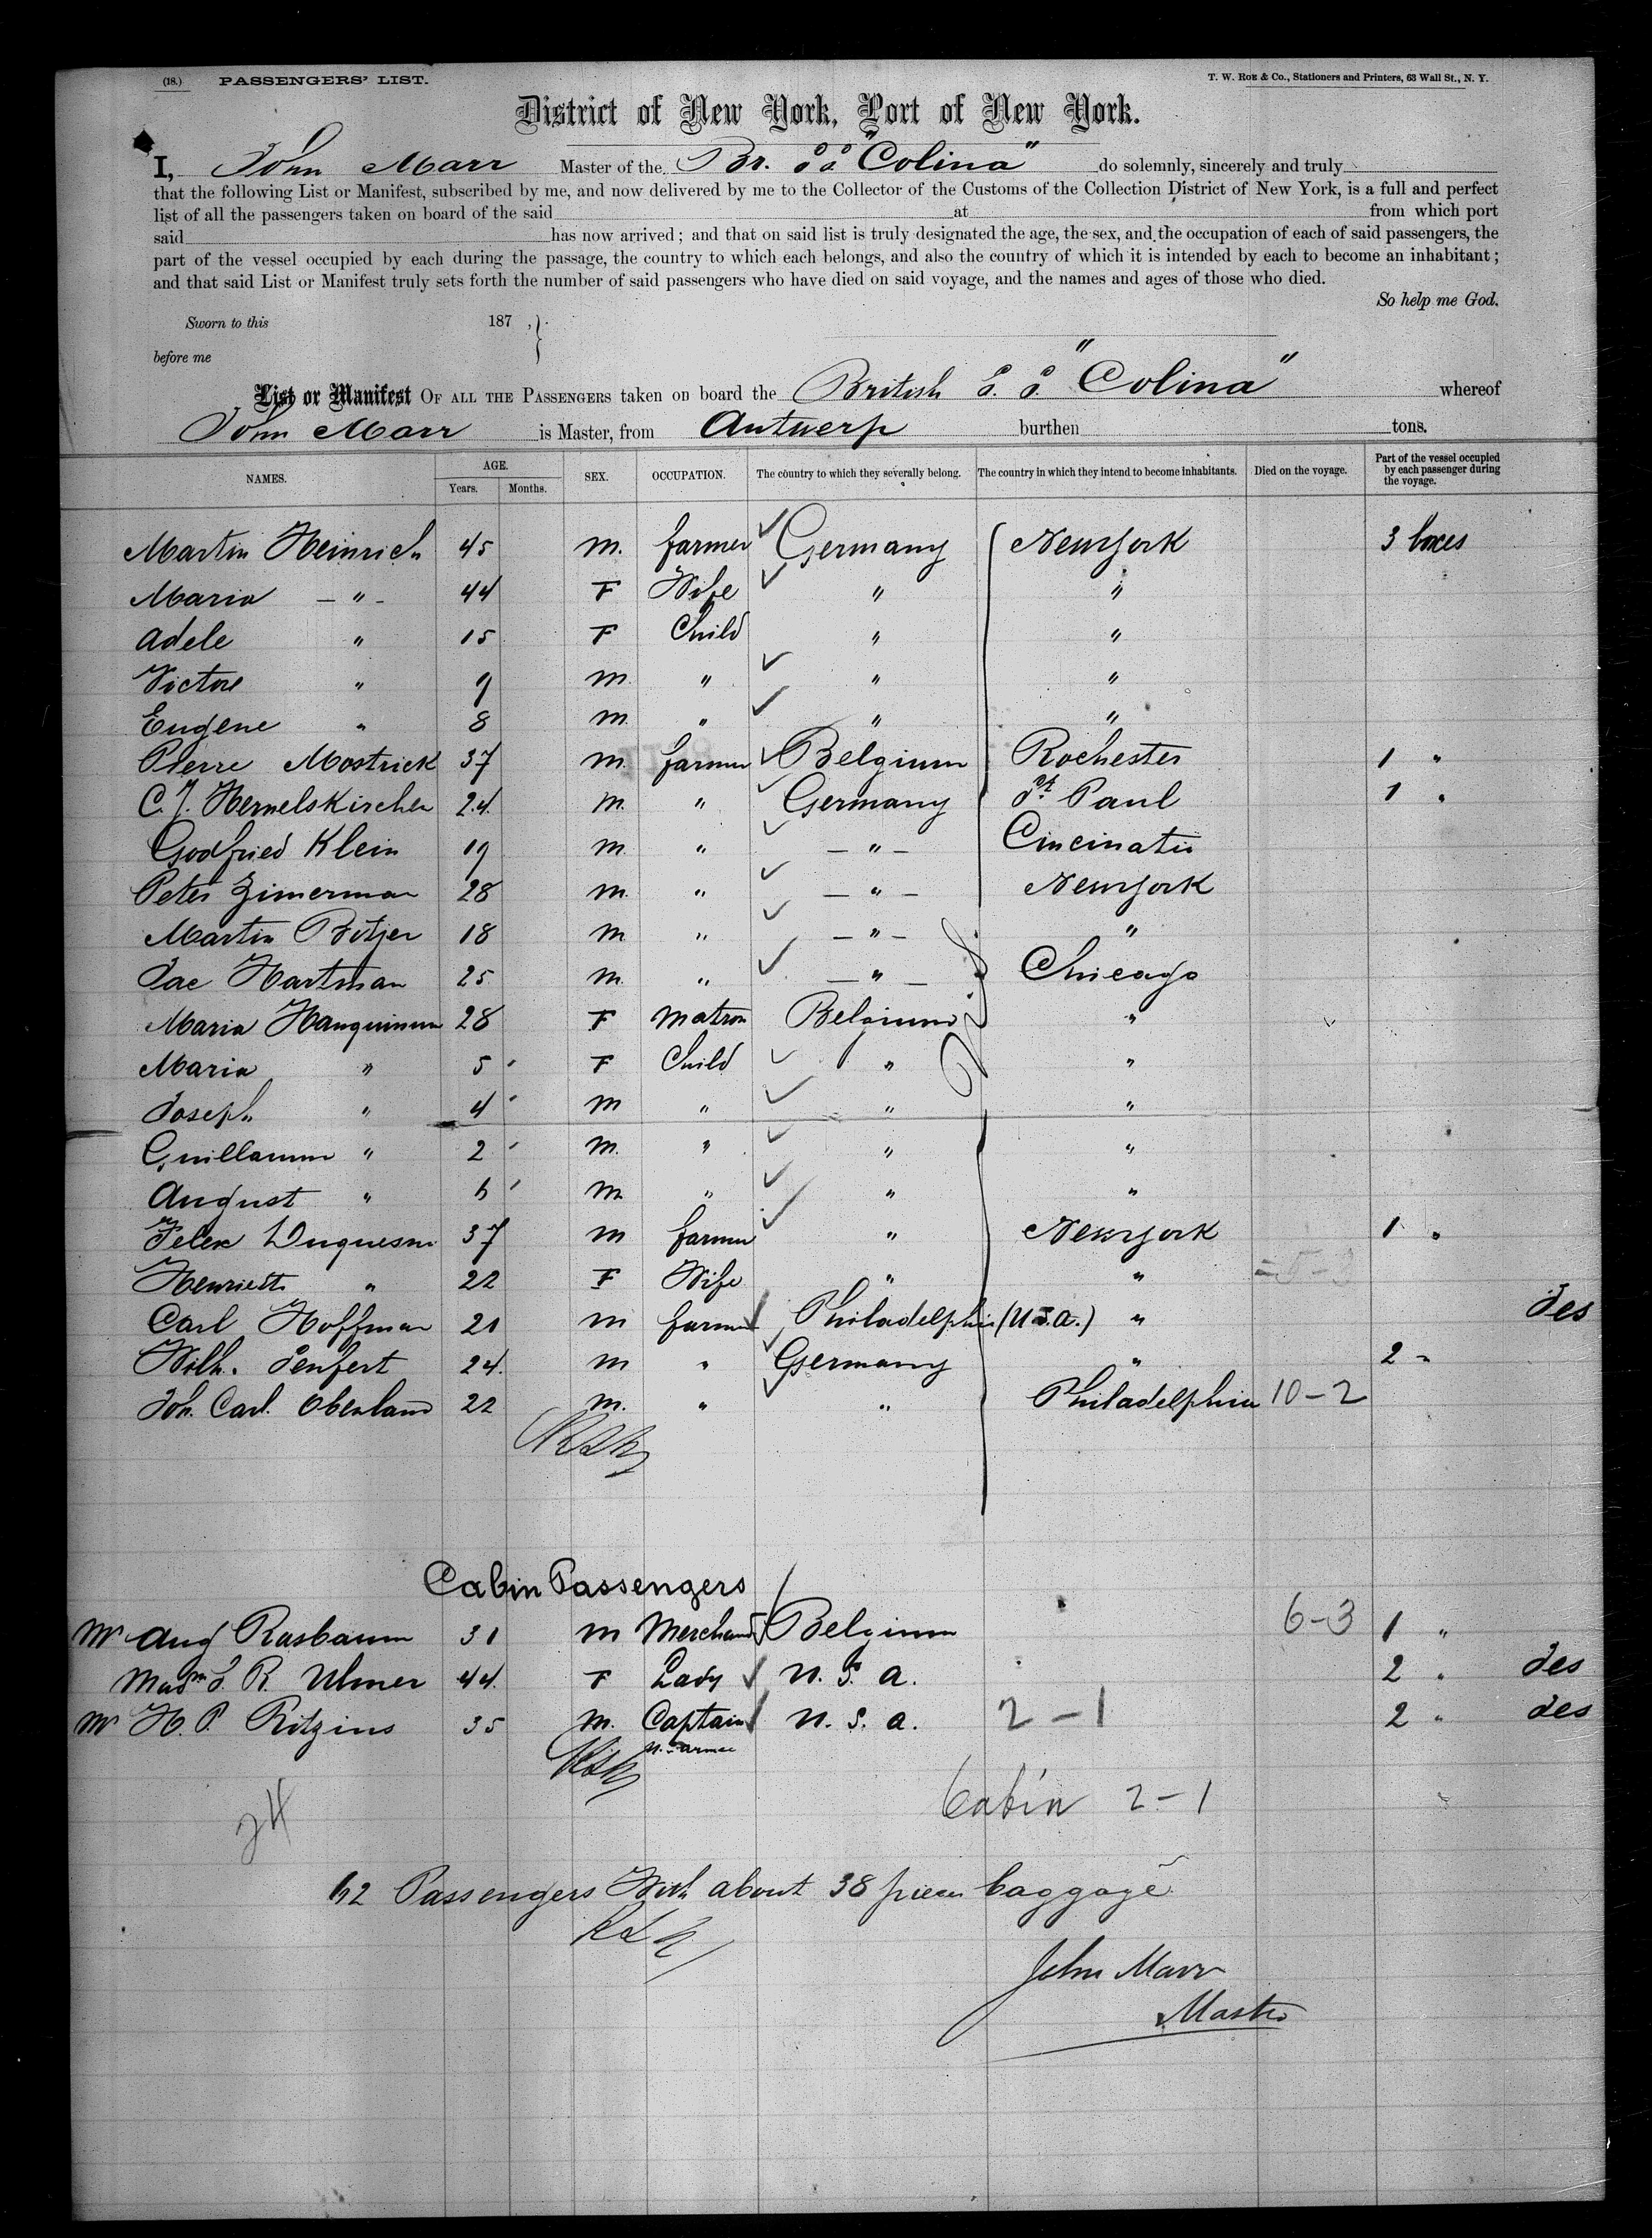 (18.) PASSENGERS' LIST.
T. W. Roe & Co., Stationers and Printers, 63 Wall St., N. Y.
District of New York, Port of New York.
I, John Marr Master of the Br. SS "Colina" do solemnly, sincerely and truly
that the following List or Manifest, subscribed by me, and now delivered by me to the Collector of the Customs of the Collection District of New York, is a full and perfect
list of all the passengers taken on board of the said at from which port
said has now arrived; and that on said list is truly designated the age, the sex, and the occupation of each of said passengers, the
part of the vessel occupied by each during the passage, the country to which each belongs, and also the country of which it is intended by each to become an inhabitant;
and that said List or Manifest truly sets forth the number of said passengers who have died on said voyage, and the names and ages of those who died.
So help me God.
Sworn to this 187 ,
before me
List or Manifest OF ALL THE PASSENGERS taken on board the British S. S. "Colina" whereof
John Marr is Master, from Antwerp burthen tons.
NAMES. AGE. Years. Months. SEX. OCCUPATION. The country to which they severally belong. The country in which they intend to become inhabitants. Died on the voyage. Part of the vessel occupied by each passenger during the voyage.
Martin Heinrich 45 M. farmer Germany New York 3 boxes
Maria — " - 44 F Wife " "
Adele " 15 F Child " "
Victor " 9 M " " "
Eugene " 8 M " " "
Pierre Mostrick 37 M farmer Belgium Rochester 1 "
C. J. Hemelskircher 24. M. " Germany St. Paul 1 "
Godfried Klein 19 M " — " — Cincinatti
Peter Zimerman 28 M. " — " — New York
Martin 18 M " — " — "
Jac Hartman 25 M " — " — Chicago
Maria 28 F Matron Belgium "
Maria " 5 F Child " "
Joseph " 4 M " " "
Guillaume " 2 M. " " "
August " M " " "
Felix Duquesne 37 M farmer " New York 1 "
Henriette " 22 F Wife " "
Carl Hoffman 21 M farmer Philadelphia (U.S.A.) " des
Wilh. Senfert 24. M " Germany " 2 "
Joh. Carl. Oberland 22 M. " " Philadelphia 10-2
Cabin Passengers
Mr Aug Rasbaum 31 M Merchand Belgium 6-3 1 "
Madm S. R. Ulmer 44. F Lady U. S. A. 2 " des
Mr H. P. Ritzius 35 M. Captain U. S. A. 2-1 2 " des
Cabin 2-1
24
62 Passengers With about 38 pieces baggage
John Marr
Master